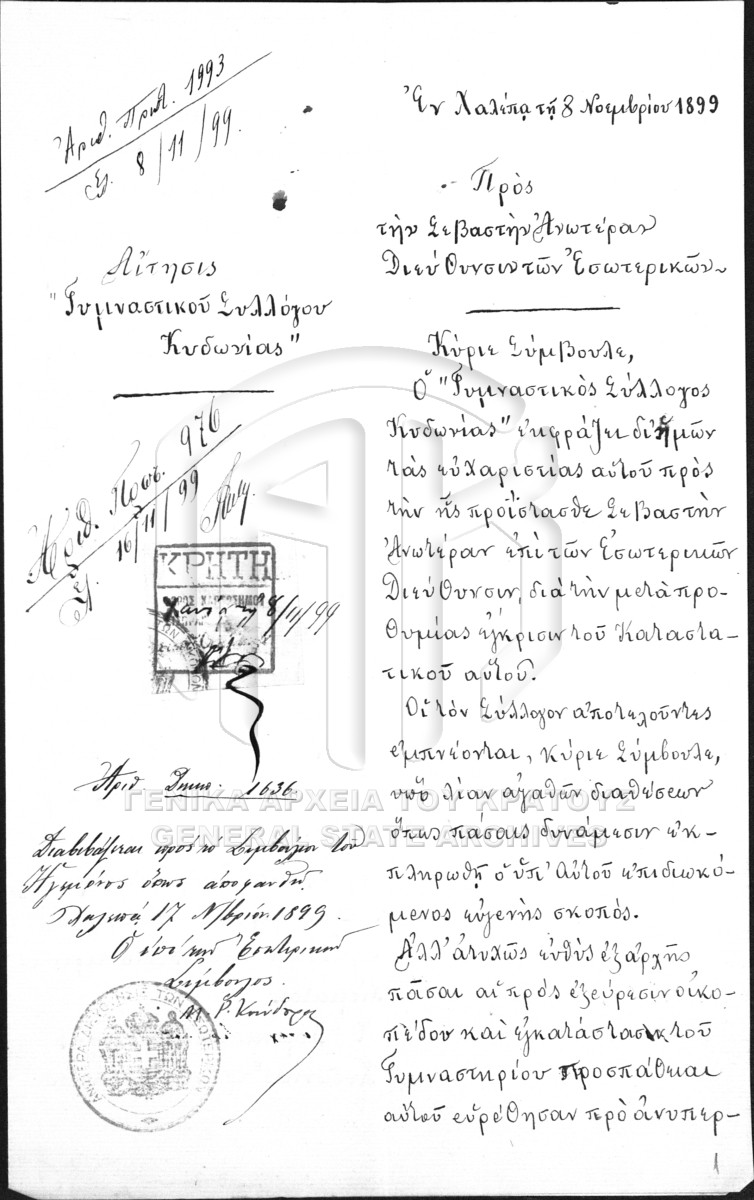 Ἀριθ. Πρωτ. 1993
Ἐλ. 8/11/99.
Αἴτησις
"Γυμναστικοῦ Συλλόγου
Κυδωνίας"
Ἀριθ. Πρωτ. 976
Ἐλ. 16/11/99
ΚΡΗΤΗ
8/11/99
Ἀριθ. Διεκπ. 1636
Διαβιβάζεται πρὸς τὸ Συμβούλιον τοῦ
Ἡγεμόνος ὅπως ἀποφανθῇ
Χαλέπα 17 Νβρίου 1899.
Ὁ ἐπὶ τῶν Ἐσωτερικῶν
Σύμβουλος
Μ. Ρ. Κούνδουρος
Ἐν Χαλέπᾳ τῇ 8 Νοεμβρίου 1899
Πρὸς
τὴν Σεβαστὴν Ἀνωτέραν
Διεύθυνσιν τῶν Ἐσωτερικῶν
Κύριε Σύμβουλε,
Ὁ "Γυμναστικὸς Σύλλογος
Κυδωνίας" ἐκφράζει δι' ἡμῶν
τὰς εὐχαριστείας αὐτοῦ πρὸς
τὴν ἧς προΐστασθε Σεβαστὴν
Ἀνωτέραν ἐπὶ τῶν Ἐσωτερικῶν
Διεύθυνσιν, διὰ τὴν μετὰ προ-
θυμίας ἔγκρισιν τοῦ Καταστα-
τικοῦ αὐτοῦ.
Οἱ τὸν Σύλλογον ἀποτελοῦντες
ἐμπνέονται, Κύριε Σύμβουλε,
ὑπὸ λίαν ἀγαθῶν διαθέσεων
ὅπως πάσαις δυνάμεσιν ἐκ-
πληρωθῇ ὁ ὑπ' Αὐτοῦ ἐπιδιωκό-
μενος εὐγενὴς σκοπός.
Ἀλλ' ἀτυχῶς εὐθὺς ἐξ ἀρχῆς
πᾶσαι αἱ πρὸς ἐξεύρεσιν οἰκο-
πέδου καὶ ἐγκατάστασιν τοῦ
Γυμναστηρίου προσπάθειαι
αὐτοῦ εὑρέθησαν πρὸ ἀνυπερ-
1
ΓΕΝΙΚΑ ΑΡΧΕΙΑ ΤΟΥ ΚΡΑΤΟΥΣ
GENERAL STATE ARCHIVES